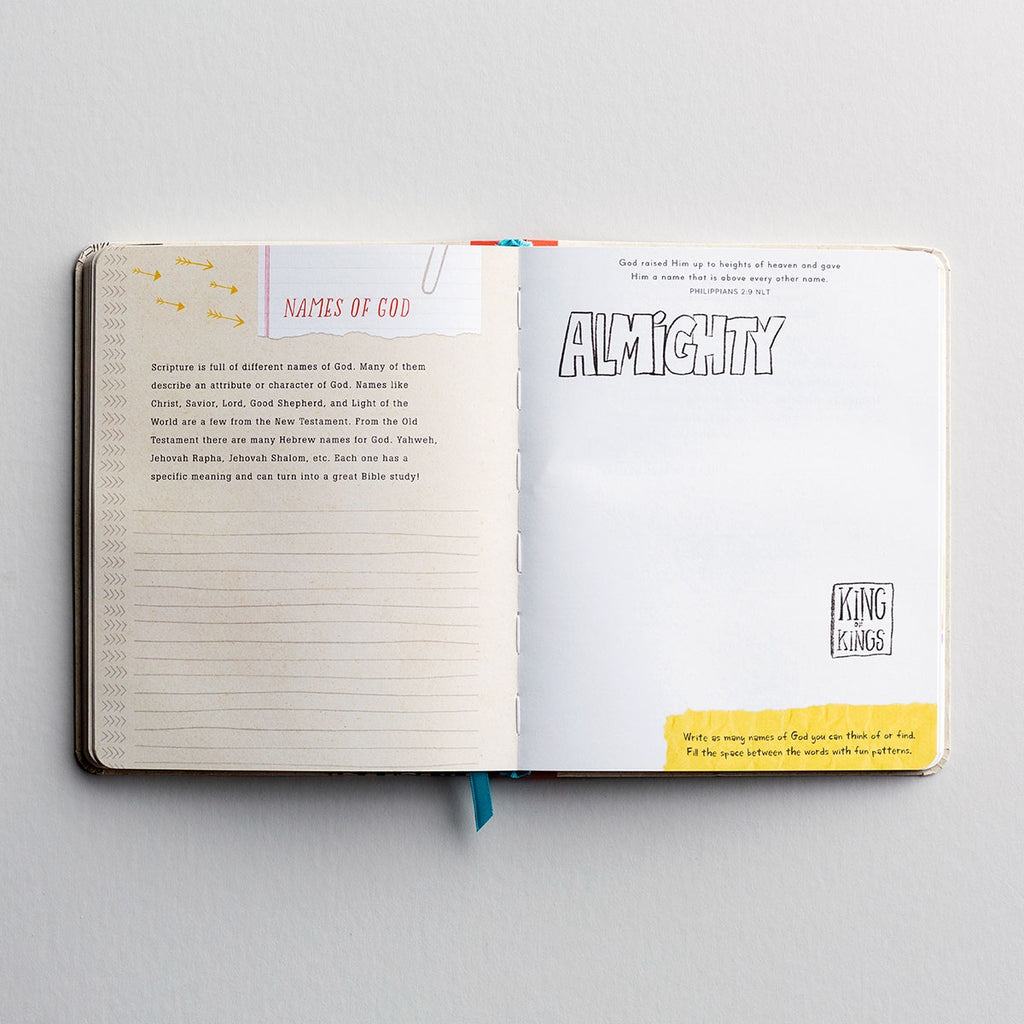 NAMES OF GOD
Scripture is full of different names of God. Many of them
describe an attribute or character of God. Names like
Christ, Savior, Lord, Good Shepherd, and Light of the
World are a few from the New Testament. From the Old
Testament there are many Hebrew names for God. Yahweh,
Jehovah Rapha, Jehovah Shalom, etc. Each one has a
specific meaning and can turn into a great Bible study!
God raised Him up to heights of heaven and gave
Him a name that is above every other name.
PHILIPPIANS 2:9 NLT
ALMiGHTY
KiNG
OF
KiNGS
Write as many names of God you can think of or find.
Fill the space between the words with fun patterns.